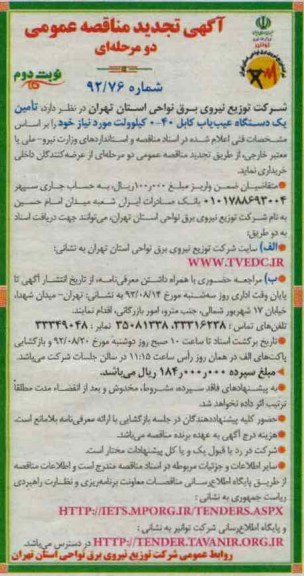 آگهی تجدید مناقصه عمومی
دو مرحله‌ای
نوبت دوم
شماره ۹۲/۷۶
شرکت توزیع نیروی برق نواحی استان تهران در نظر دارد، تأمین
یک دستگاه عیب‌یاب کابل ۴۰-۰ کیلوولت مورد نیاز خود را بر اساس
مشخصات فنی اعلام شده در اسناد مناقصه و استانداردهای وزارت نیرو-ملی یا
معتبر خارجی، از طریق تجدید مناقصه عمومی دو مرحله‌ای از عرضه‌کنندگان داخلی
خریداری نماید.
متقاضیان ضمن واریز مبلغ ۱۰۰٫۰۰۰ ریال، به حساب جاری سپهر
۰۱۰۱۷۸۸۶۹۳۰۰۴ بانک صادرات ایران شعبه میدان امام حسین
به نام شرکت توزیع نیروی برق نواحی استان تهران، می‌توانند جهت دریافت اسناد
به دو طریق:
الف) سایت شرکت توزیع نیروی برق نواحی استان تهران به نشانی:
WWW.TVEDC.IR
ب) مراجعه حضوری با همراه داشتن معرفی‌نامه، از تاریخ انتشار آگهی تا
پایان وقت اداری روز سه‌شنبه مورخ ۹۲/۰۸/۱۴ به نشانی: تهران- میدان شهدا،
خیابان ۱۷ شهریور شمالی، جنب مترو، امور بازرگانی، اقدام نمایند.
تلفن‌های تماس: ۳۳۳۱۶۲۳۸، ۳۵۰۸۱۳۳۸ نمابر: ۳۳۳۴۹۰۴۸
تاریخ برگشت اسناد تا ساعت ۱۰ صبح روز دوشنبه مورخ ۹۲/۰۸/۲۰ و بازگشایی
پاکت‌های الف در همان روز رأس ساعت ۱۱:۱۵ در سالن جلسات شرکت می‌باشد.
مبلغ سپرده ۱۸۴٫۰۰۰٫۰۰۰ ریال می‌باشد.
به پیشنهادهای فاقد سپرده، مشروط، مخدوش و بعد از انقضاء مدت مطلقاً
ترتیب اثر داده نخواهد شد.
حضور کلیه پیشنهاددهندگان در جلسه بازگشایی با ارائه معرفی‌نامه بلامانع است.
هزینه درج آگهی به عهده برنده مناقصه می‌باشد.
شرکت در رد یا قبول یک و یا کل پیشنهادات مختار است.
سایر اطلاعات و جزئیات مربوطه در اسناد مناقصه مندرج است و اطلاعات مناقصه
از طریق پایگاه اطلاع‌رسانی مناقصات معاونت برنامه‌ریزی و نظارت راهبردی
ریاست جمهوری به نشانی:
HTTP://IETS.MPORG.IR/TENDERS.ASPX
و پایگاه اطلاع‌رسانی شرکت توانیر به نشانی:
HTTP://TENDER.TAVANIR.ORG.IR در دسترس می‌باشد.
روابط عمومی شرکت توزیع نیروی برق نواحی استان تهران